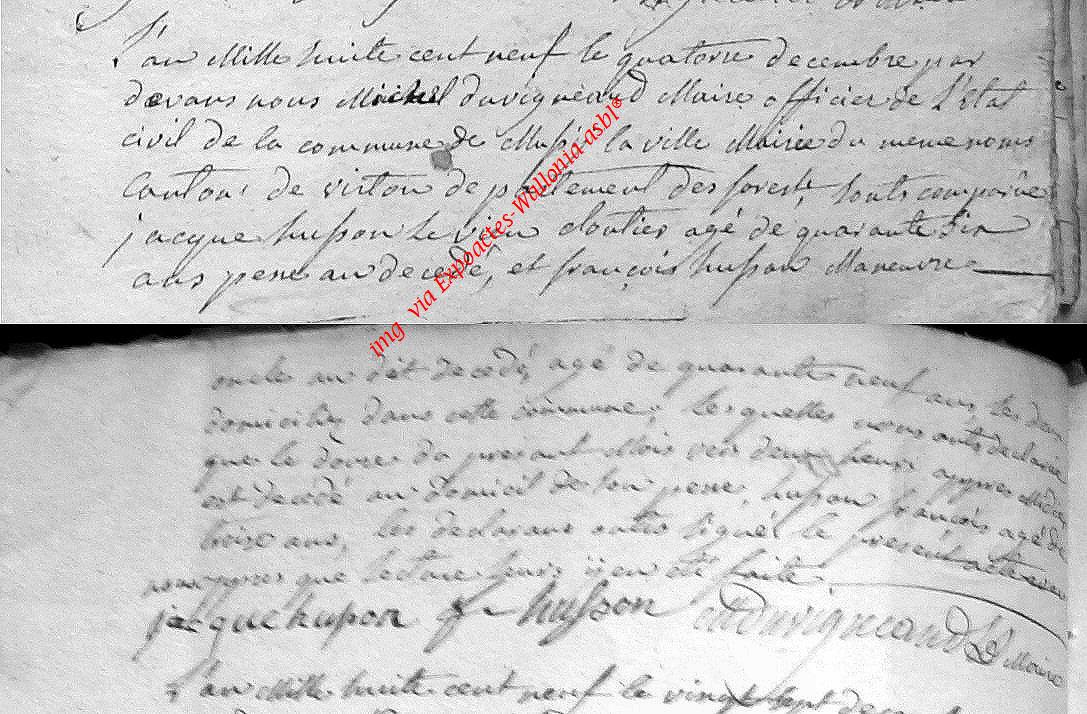 L'an Mille huite cent neuf le quatorze decembre par
devans nous Michel duvigneaud Maire officier de L'Etat
civil de la commune de Mussi la ville Mairie du meme noms
Canton de virton departement des forest, sonts comparue
jacque husson Le vieu cloutier agé de quarante six
ans pere au decedé, et françois husson Maneuvre
img via Expoactes-Wallonia-asbl®
oncle au dit decedé, agé de quarante neuf ans, les deux
domicilies dans cette commune, Lesquelles nous onts declaree
que le douze du present Mois ver deux heures appres Midi
est decedé au domicil de son pere, husson françois agé de
troise ans, les declarans onts signé le present acte
appres que lecture leurs en eté faite
jacque husson f husson MDuvigneaud Maire
L'an Mille huite cent neuf le vingt sept